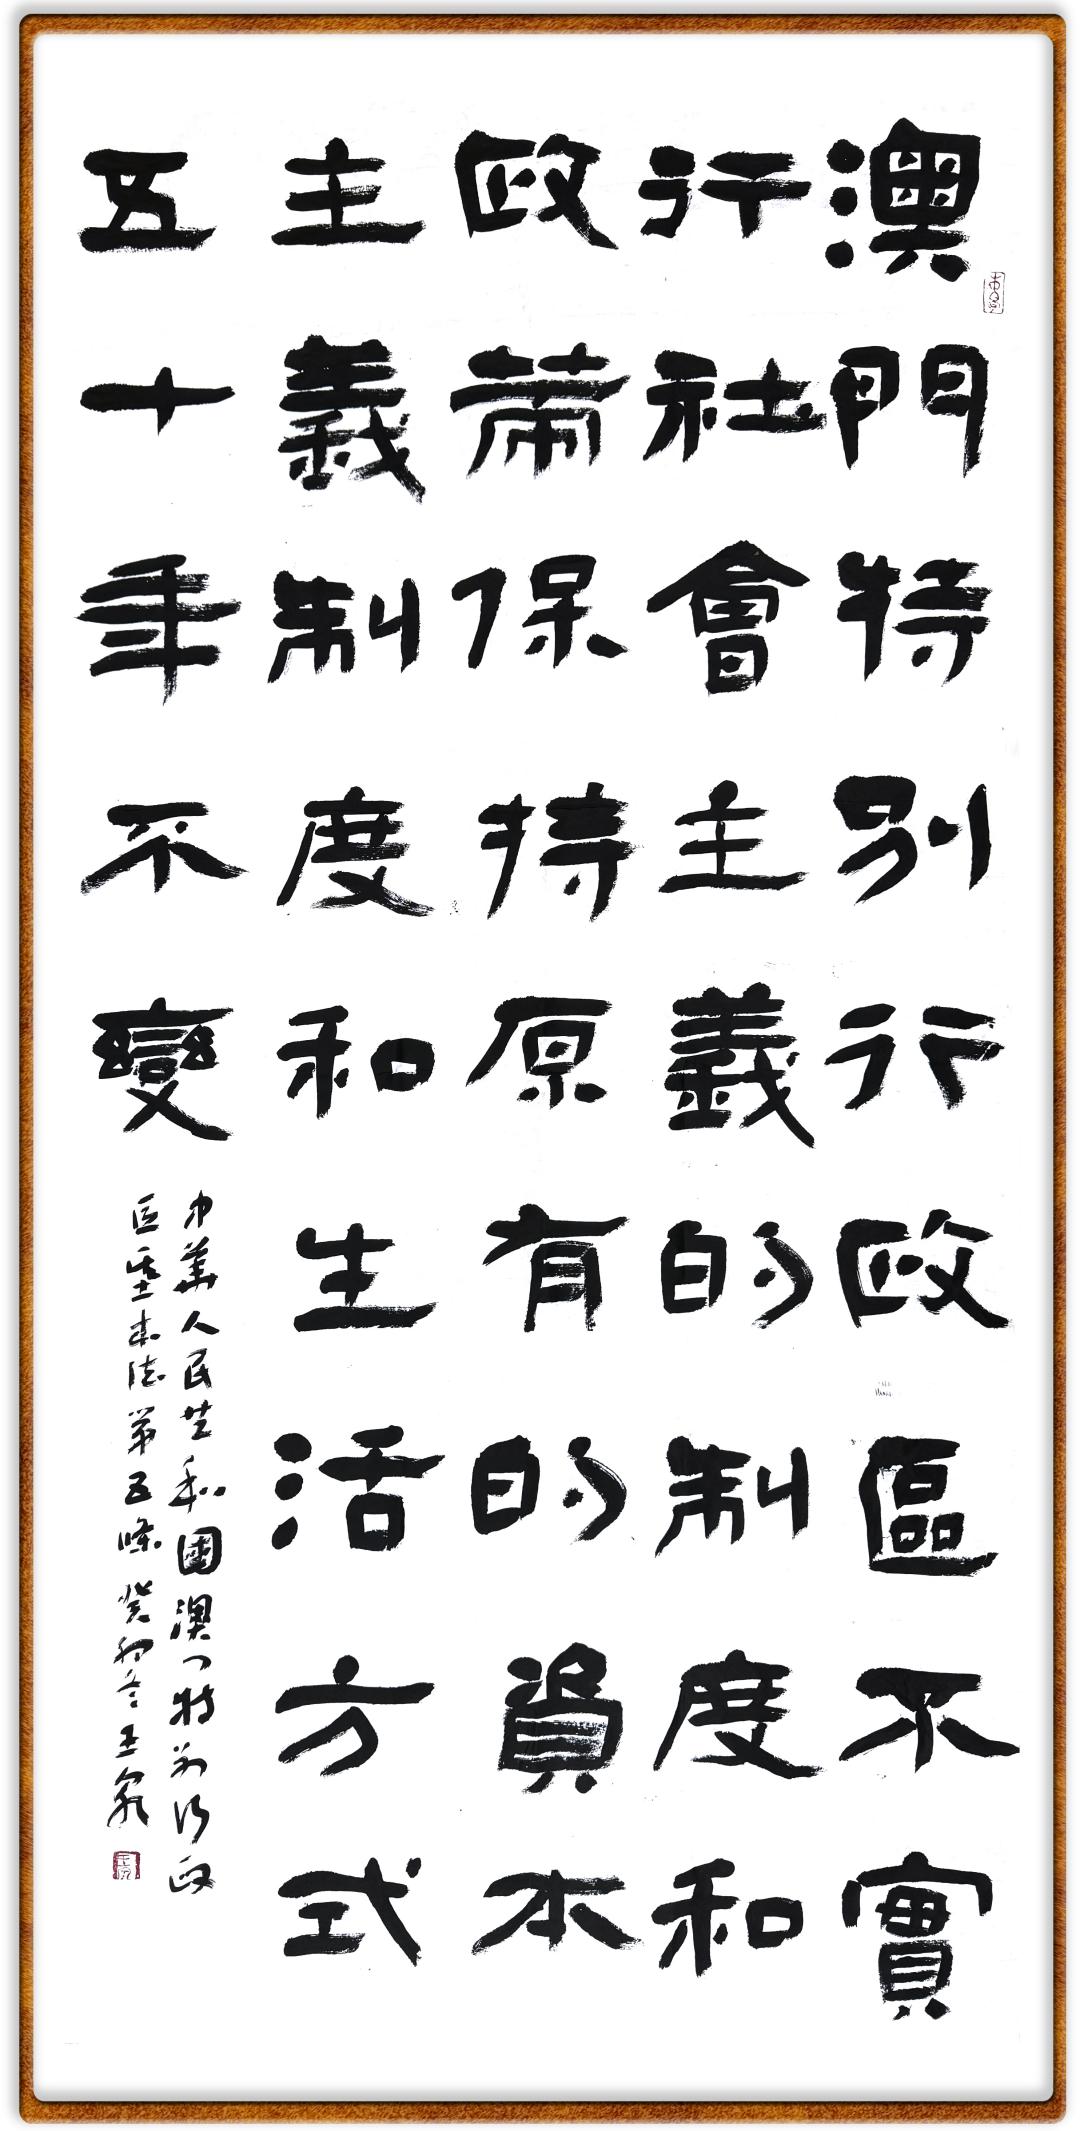 澳門特別行政區不實
行社會主義的制度和
政策保持原有的資本
主義制度和生活方式
五十年不變
中華人民共和國澳门特别行政
区基本法第五條 癸卯冬王